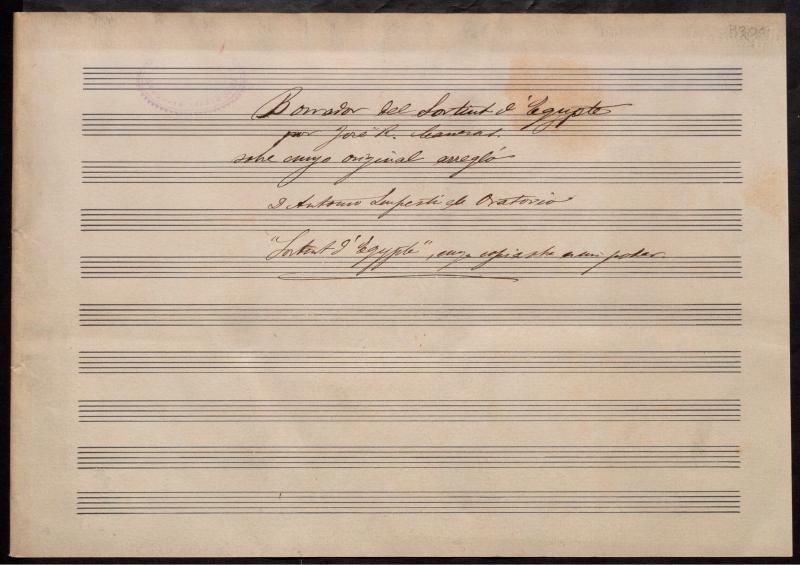 Borrador del Sortint d'Egypte
por José R. Manent.
sobre cuyo original arregló
D Antonio el Oratorio
"Sortint d'Egypte", cuya copia obra en mi poder.